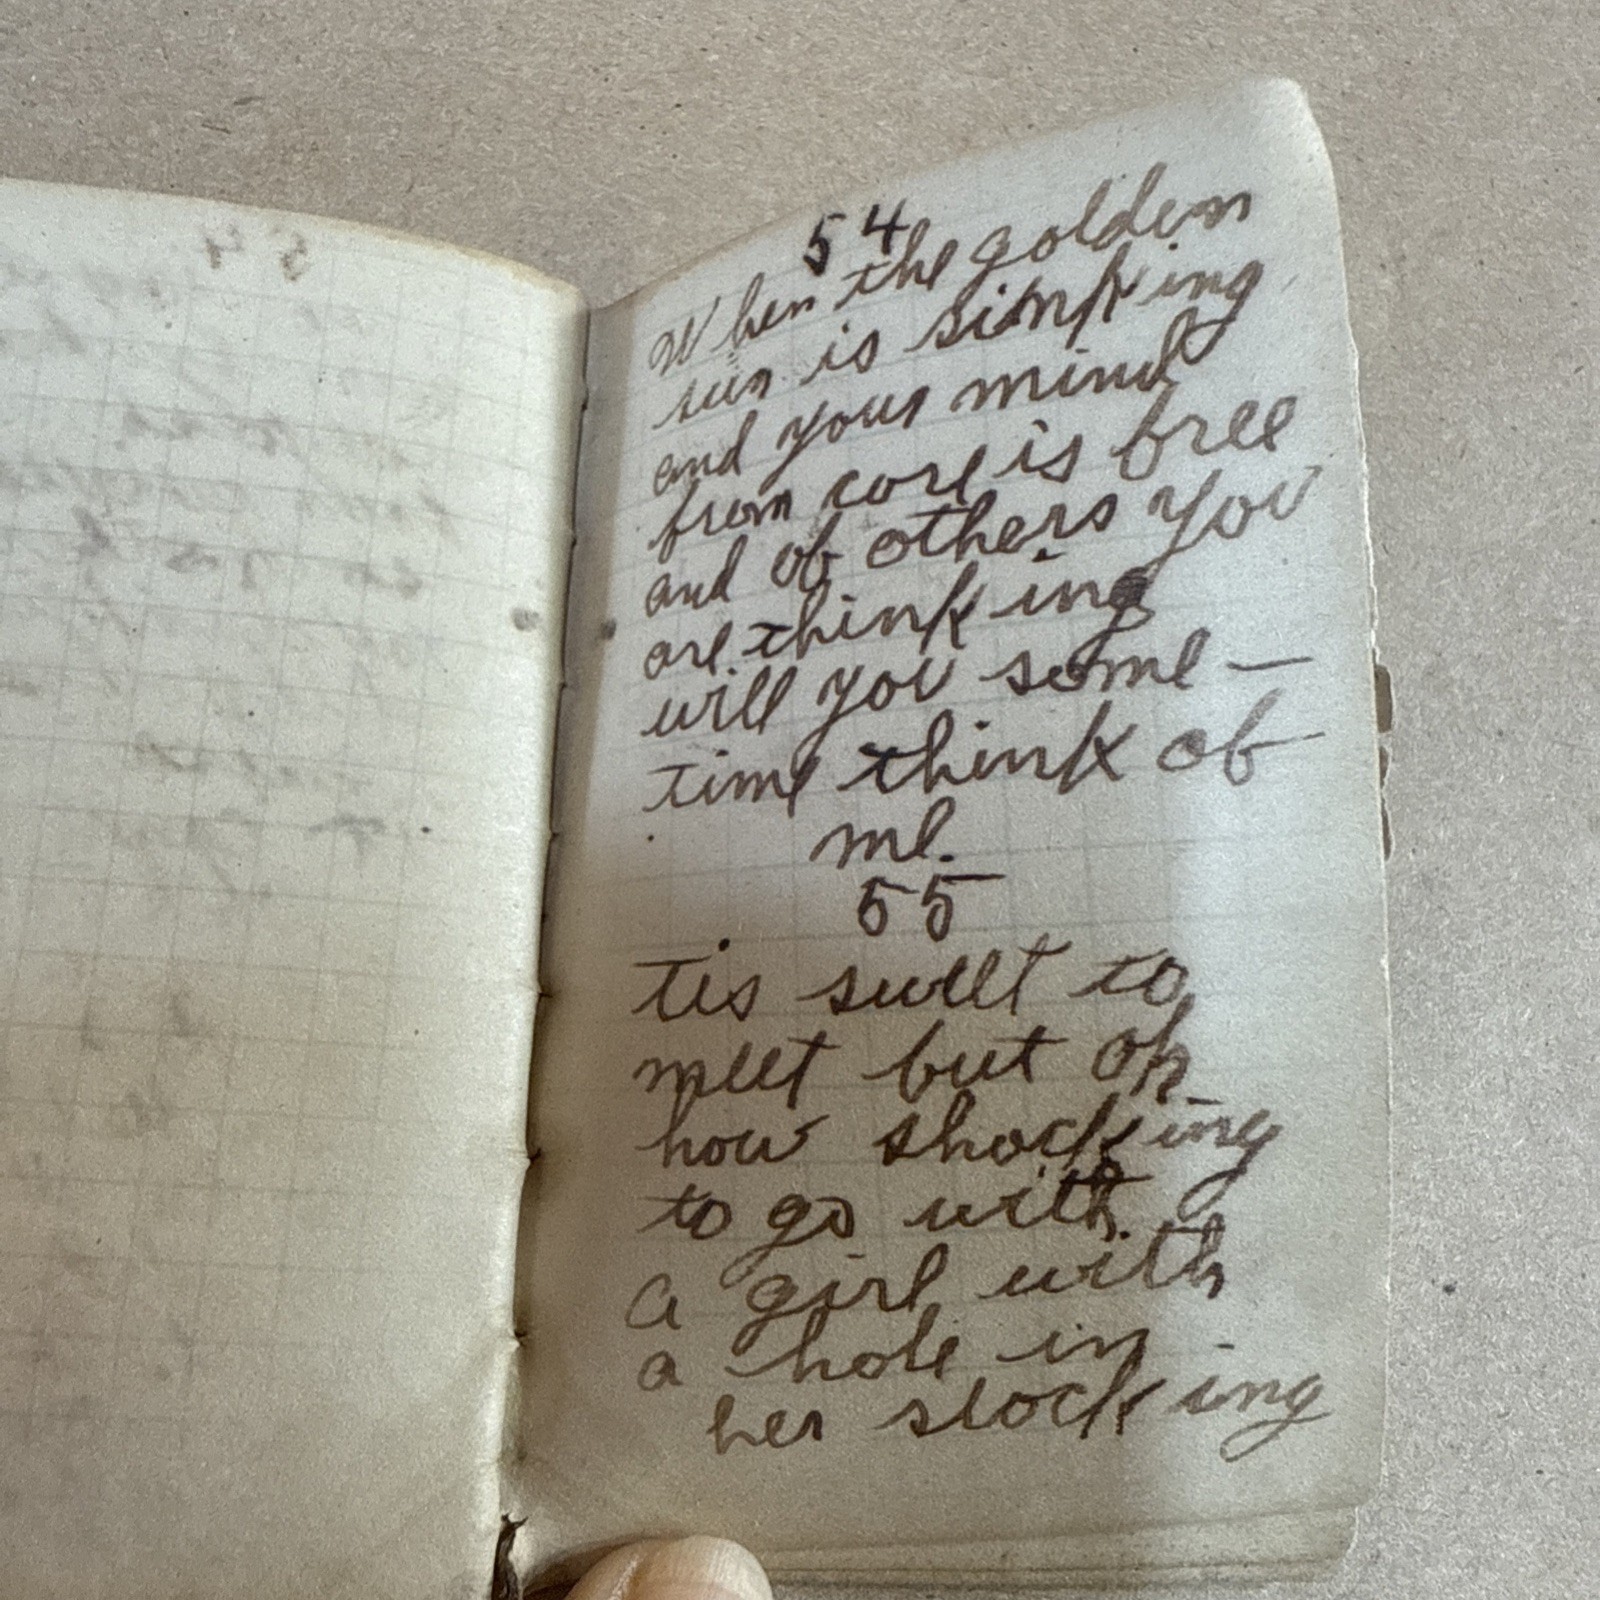 54
When the golden
sun is sinking
and your mind
from care is free
and of others you
are thinking
will you some-
time think of
me.
55
tis sweet to
meet but oh
how shocking
to go with
a girl with
a hole in
her stocking